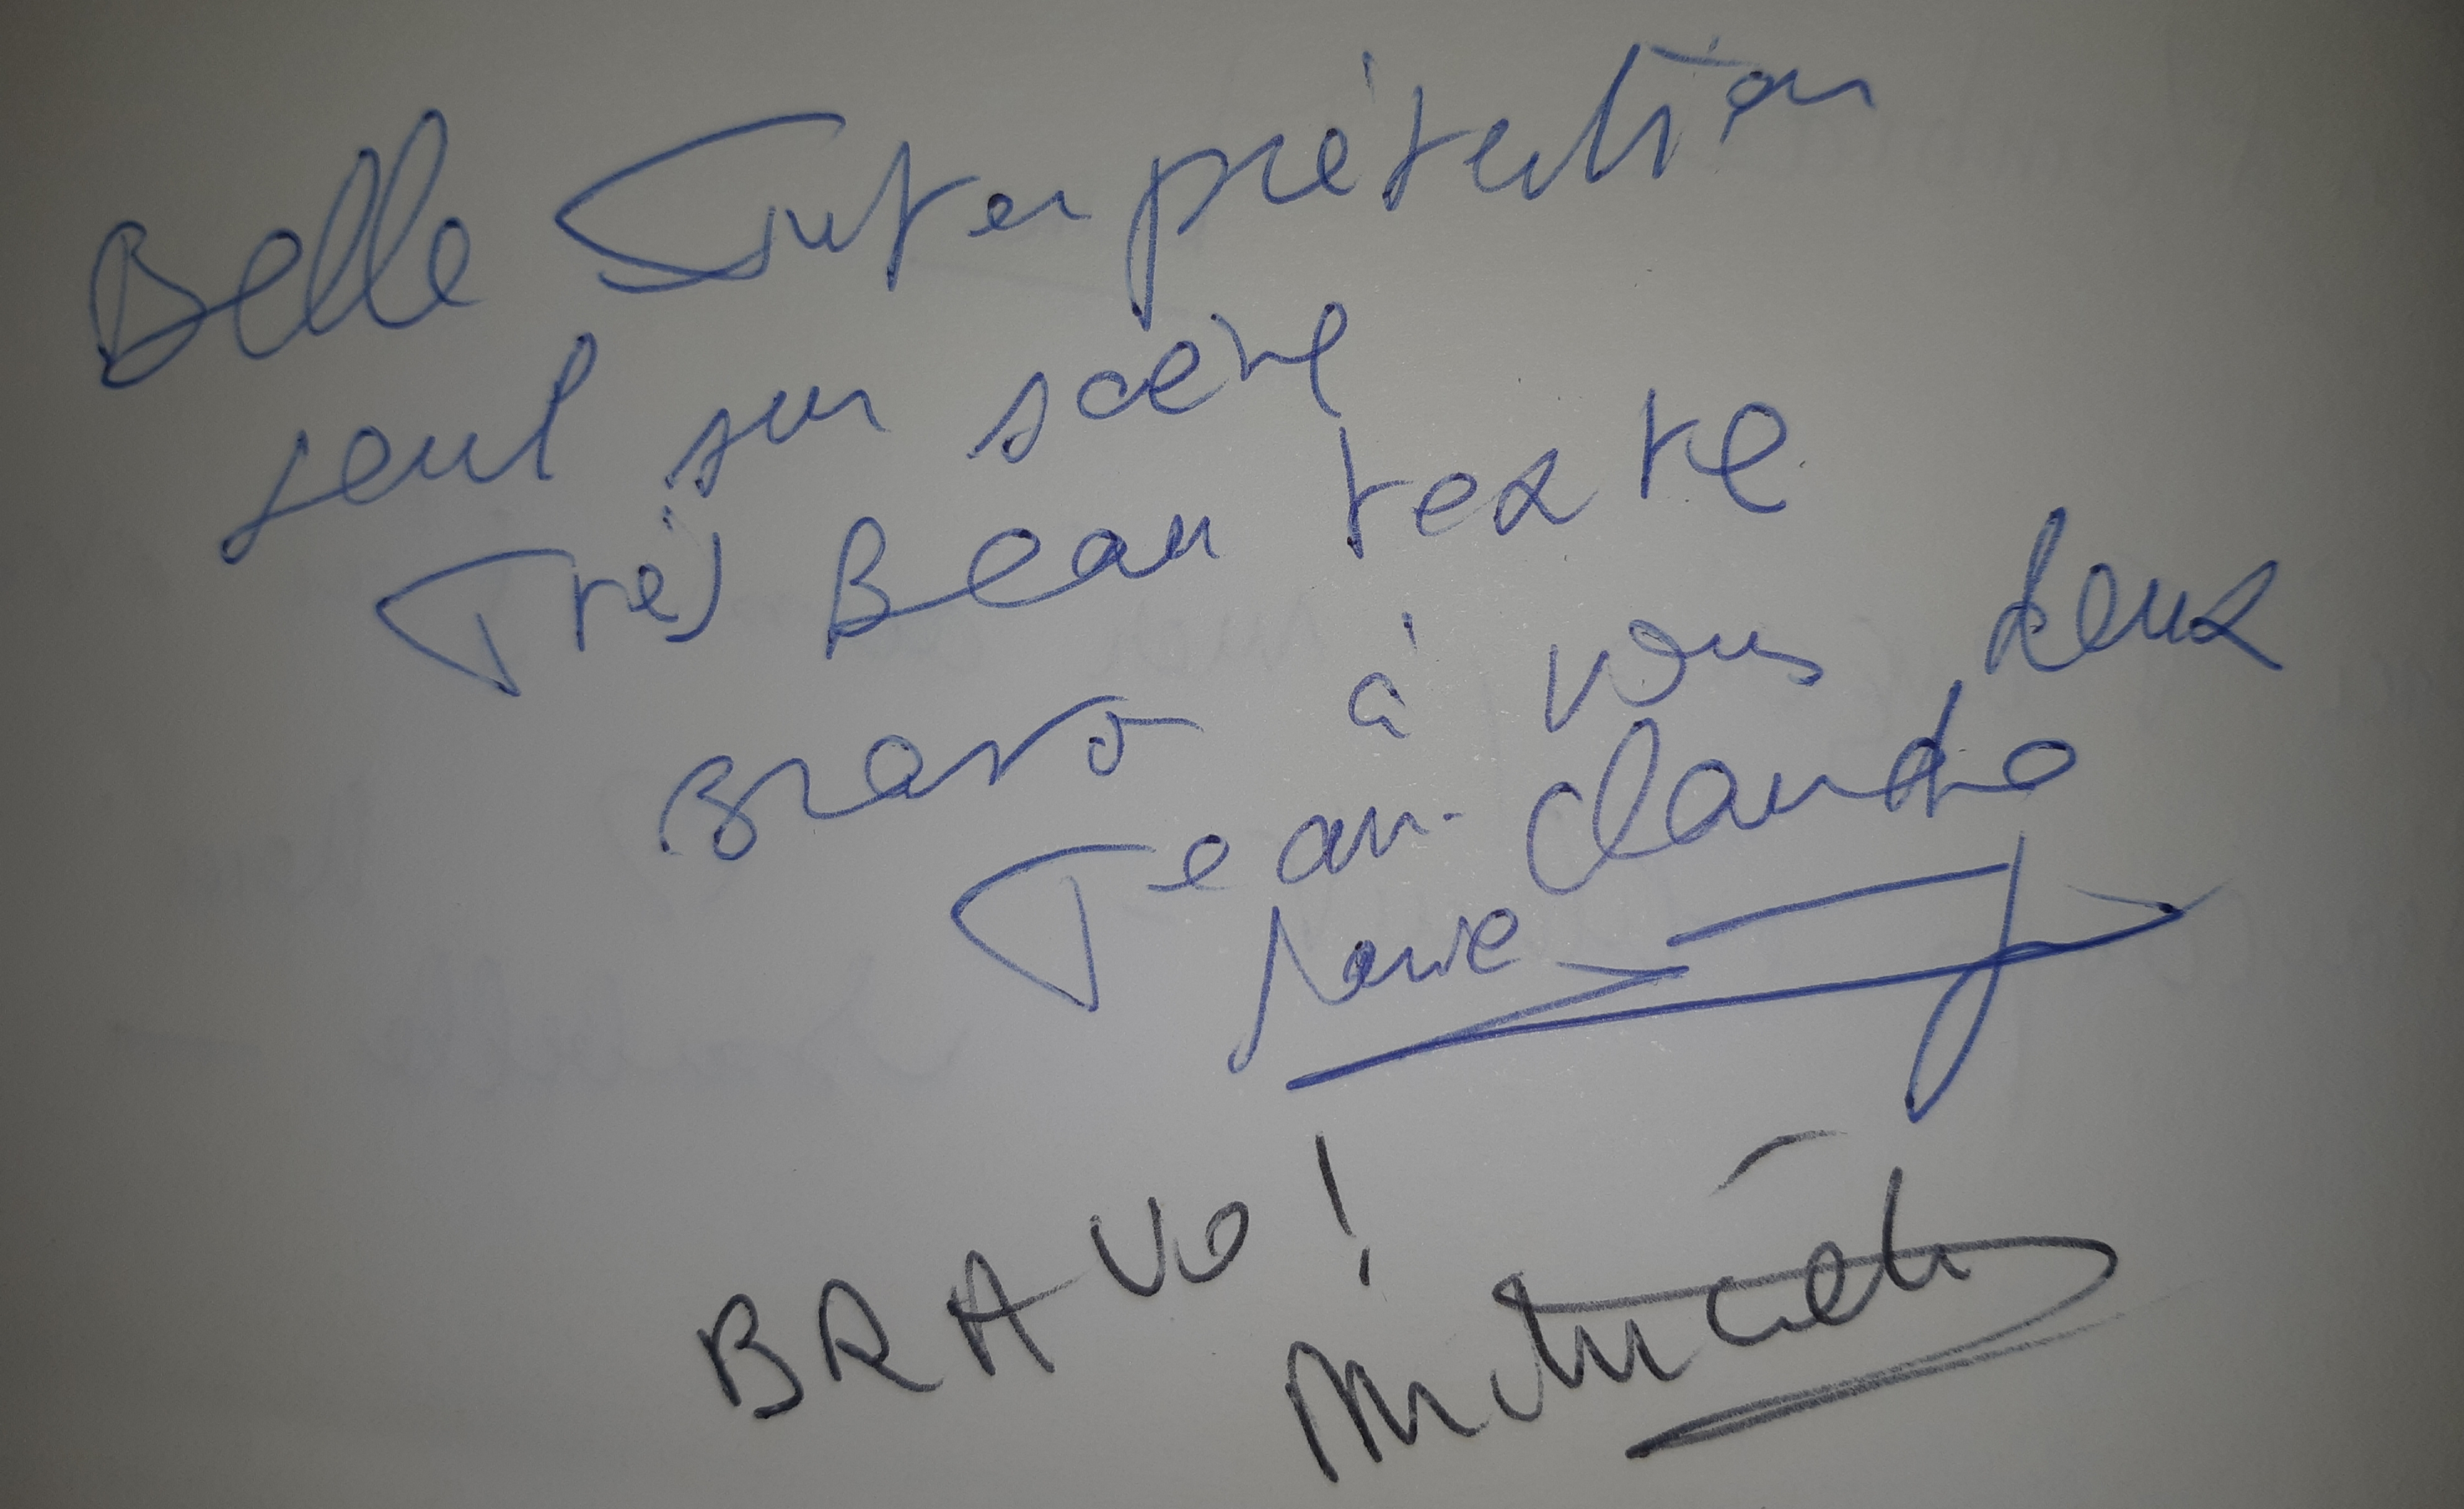 Belle Interprétation
seul sur scène
Très Beau texte
Bravo à vous deux
Jean-Claude
Marie
BRAVO!